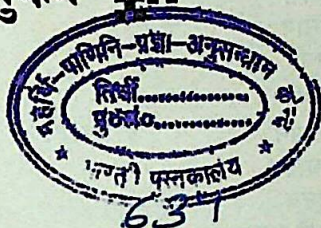 महर्षि-पाणिनि-प्रज्ञा-अनुसन्धान
तिथी..................
पुष्ठसं०..................
पुस्तकालय
637